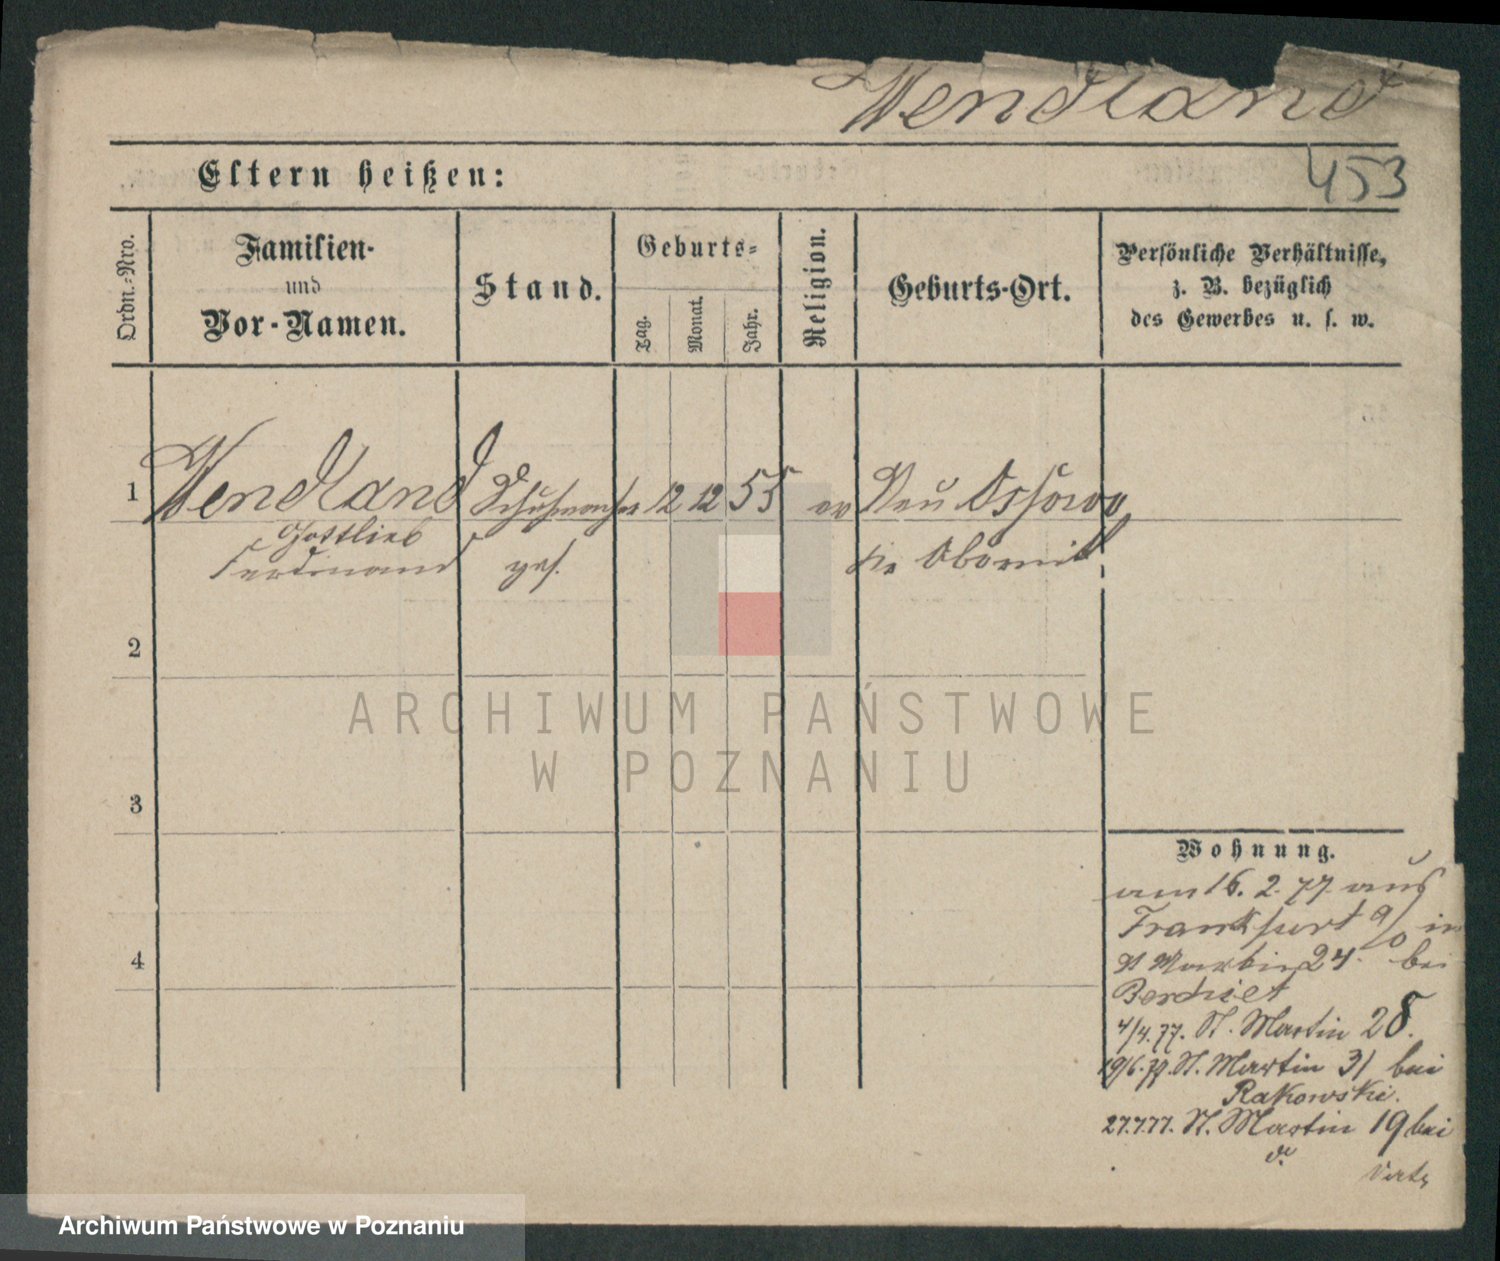 Wendland
453
Eltern heißen:
Ordn.-Nro.
Familien-
und
Vor-Namen.
Stand.
Geburts-
Tag.
Monat.
Jahr.
Religion.
Geburts-Ort.
Persönliche Verhältnisse,
z. B. bezüglich
des Gewerbes u. s. w.
1 Wendland Schuhmacher 12 12 55 ev Neu Ossowo
Gottlieb
Ferdinand ges. Kr Obornik
2
3
4
Wohnung.
am 16. 2. 77. aus
Frankfurt a/O in
St Martin 24. bei
4/4. 77. St. Martin 28.
19/6. 77. St. Martin 31 bei
Rakowski.
27.7.77. St. Martin 19 bei
d.
ARCHIWUM PAŃSTWOWE
W POZNANIU
Archiwum Państwowe w Poznaniu